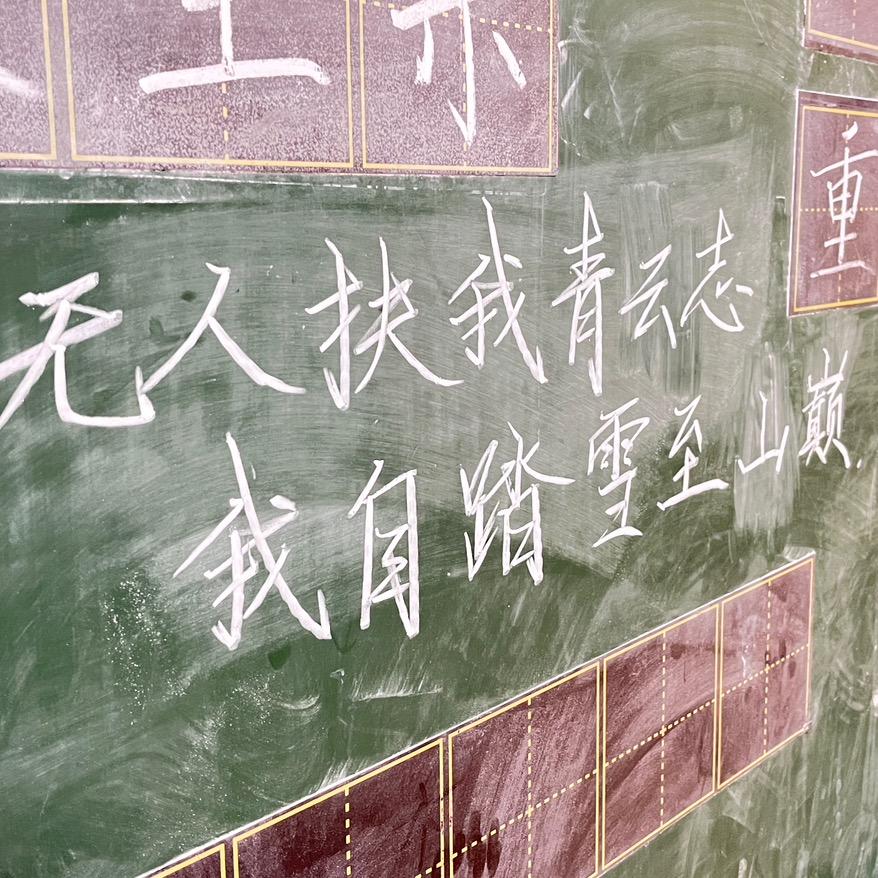 重
无人扶我青云志
我自踏雪至山巅.